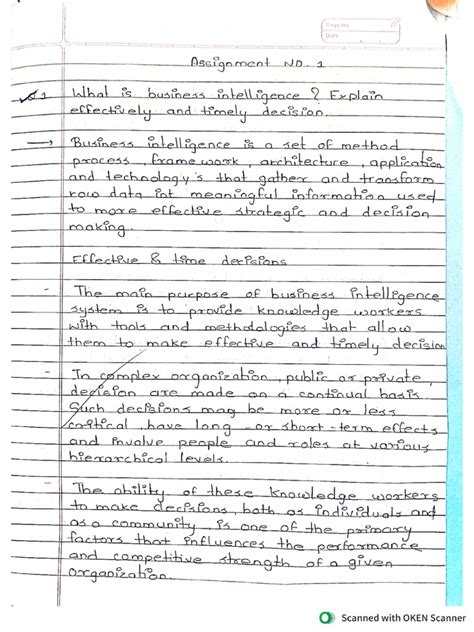 Page No.
Date
Assignment NO. 1
Q.1 What is business intelligence ? Explain
effectively and timely decision.
→ Business intelligence is a set of method
process, frame work, architecture, application
and technology's that gather and transform
row data int meaningful information used
to more effective strategic and decision
making.
Effective & time decisions
- The main purpose of business intelligence
system is to provide knowledge workers
with tools and methodologies that allow
them to make effective and timely decision
- In complex organization, public or private,
decision are made on a continual basis
Such decisions may be more or less
critical, have long - or short-term effects
and involve people and roles at various
hierarchical levels.
- The ability of these knowledge workers
to make decisions, both as individuals and
as a community, is one of the primary
factors that influences the performance
and competitive strength of a given
organization.
Scanned with OKEN Scanner